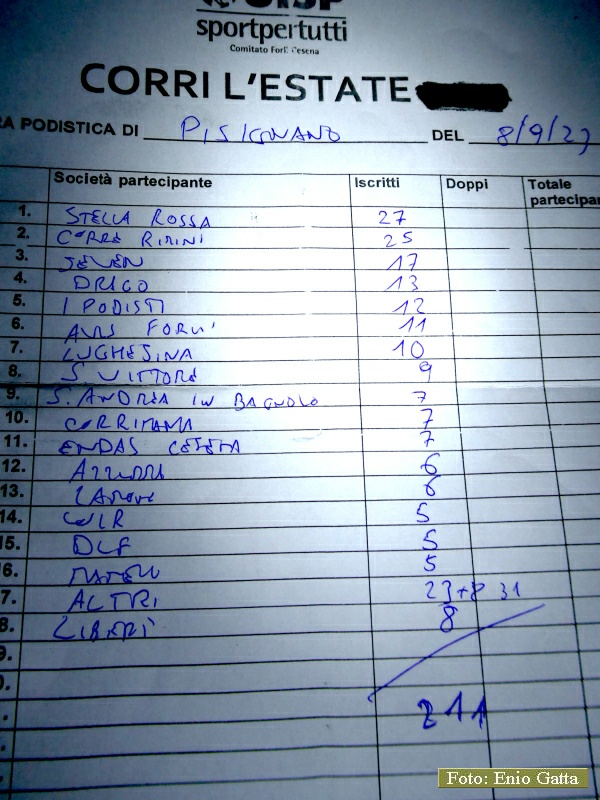 UISP
sportpertutti
Comitato Forlì Cesena
CORRI L'ESTATE
RA PODISTICA DI PISIGNANO DEL 8/9/23
Società partecipante Iscritti Doppi Totale
partecipan
1. STELLA ROSSA 27
2. CORRE RIMINI 25
3. SEVEN 17
4. DRAGO 13
5. I PODISTI 12
6. AVIS FORLI' 11
7. LUGHESINA 10
8. S VITTORE 9
9. S. ANDREA IN BAGNOLO 7
10. 7
11. ENDAS CESENA 7
12. AZZURRA 6
13. 6
14. 5
15. DLF 5
16. 5
7. ALTRI 23+8 31
8. LIBERI 8
9.
0.
211
Foto: Enio Gatta